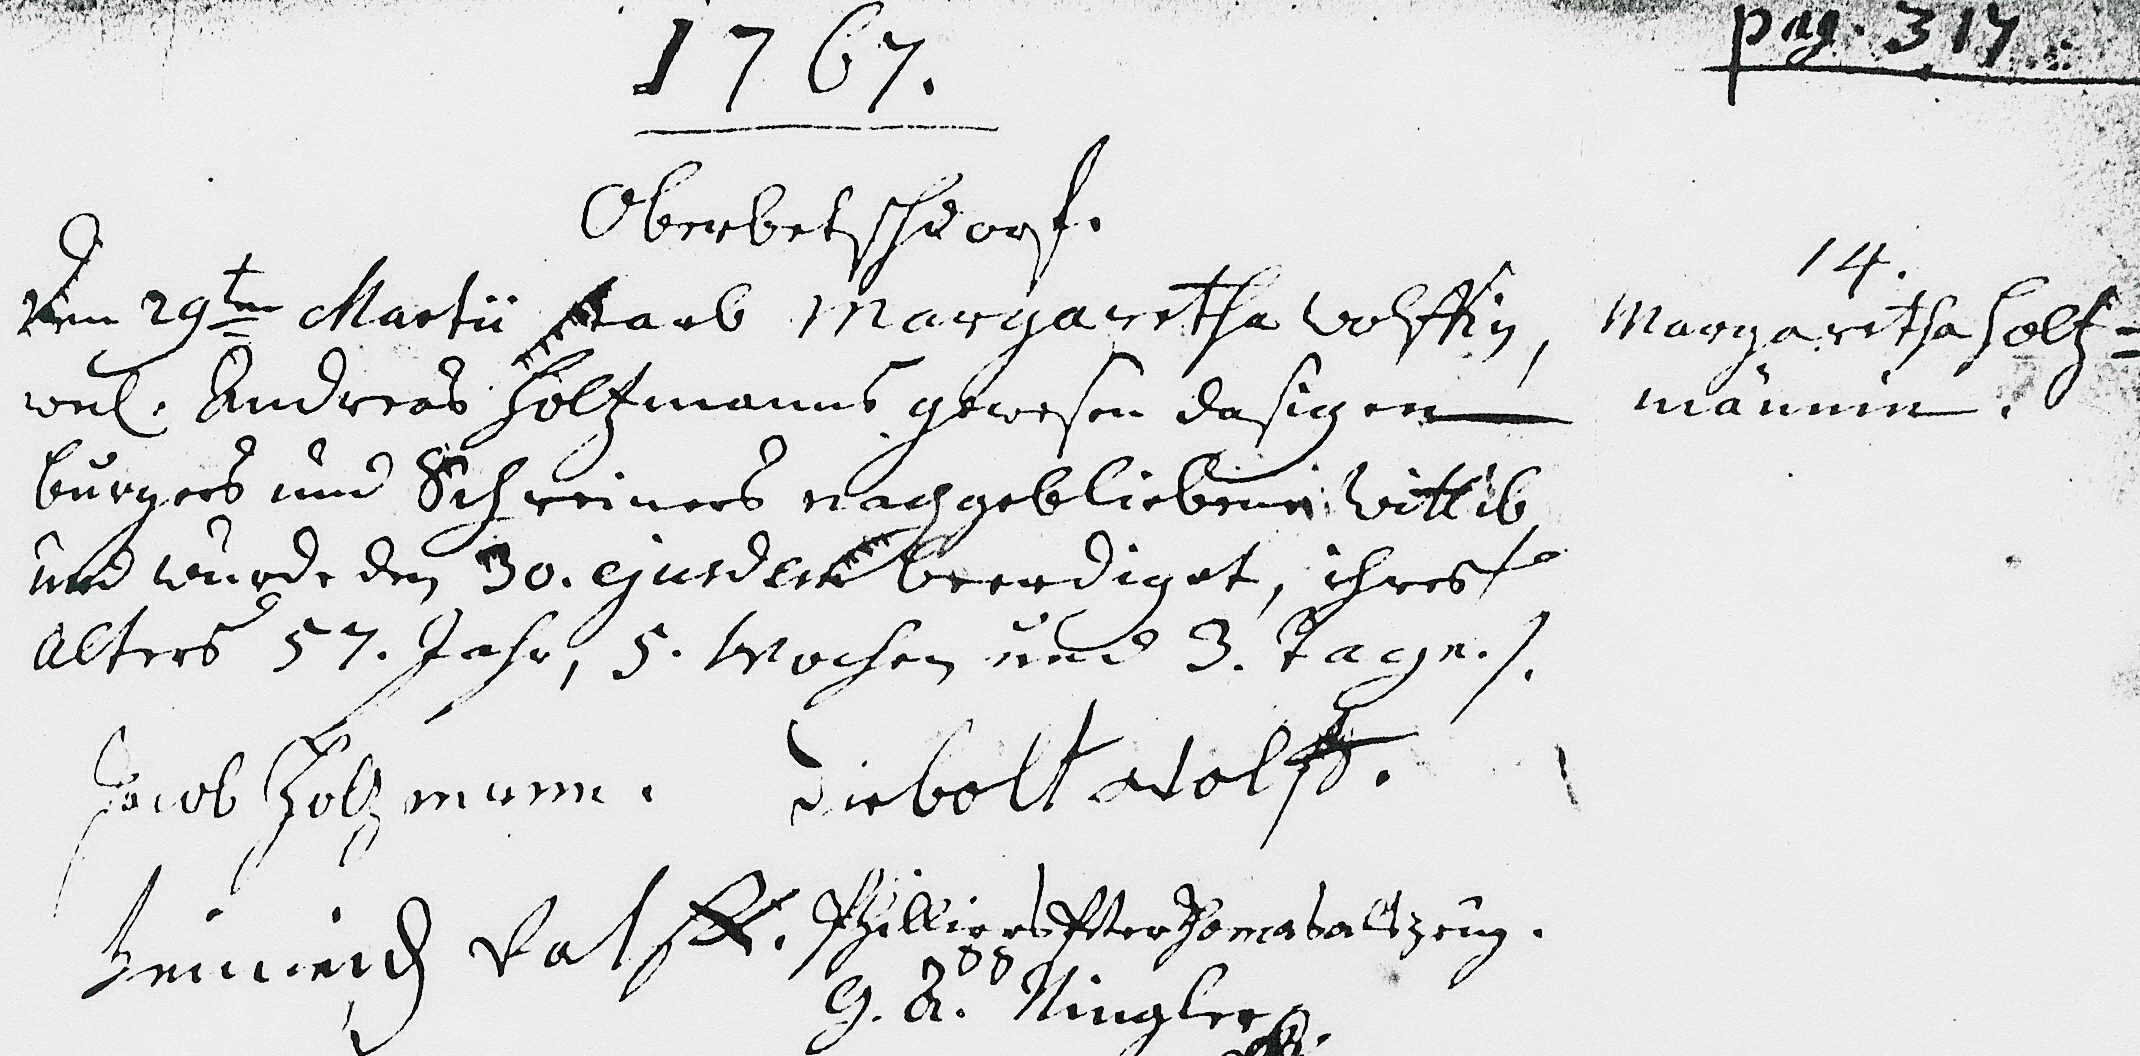 pag. 317
1767.
Oberbetschdorf.
14.
Den 29ten Martii starb Margaretha Wolffin,
weil. Andreas Holtzmanns gewesen dasigen
burgers und Schreiners nachgebliebene Wittib
und wurde den 30. ejusdem beerdiget, ihres
Alters 57. Jahr, 5. Wochen und 3. Tage./.
Margaretha Holtz=
männin.
Jacob Holzmann. Diebolt Wolff.
Heinrich Peter Thomas als zeüg.
G. Ningler